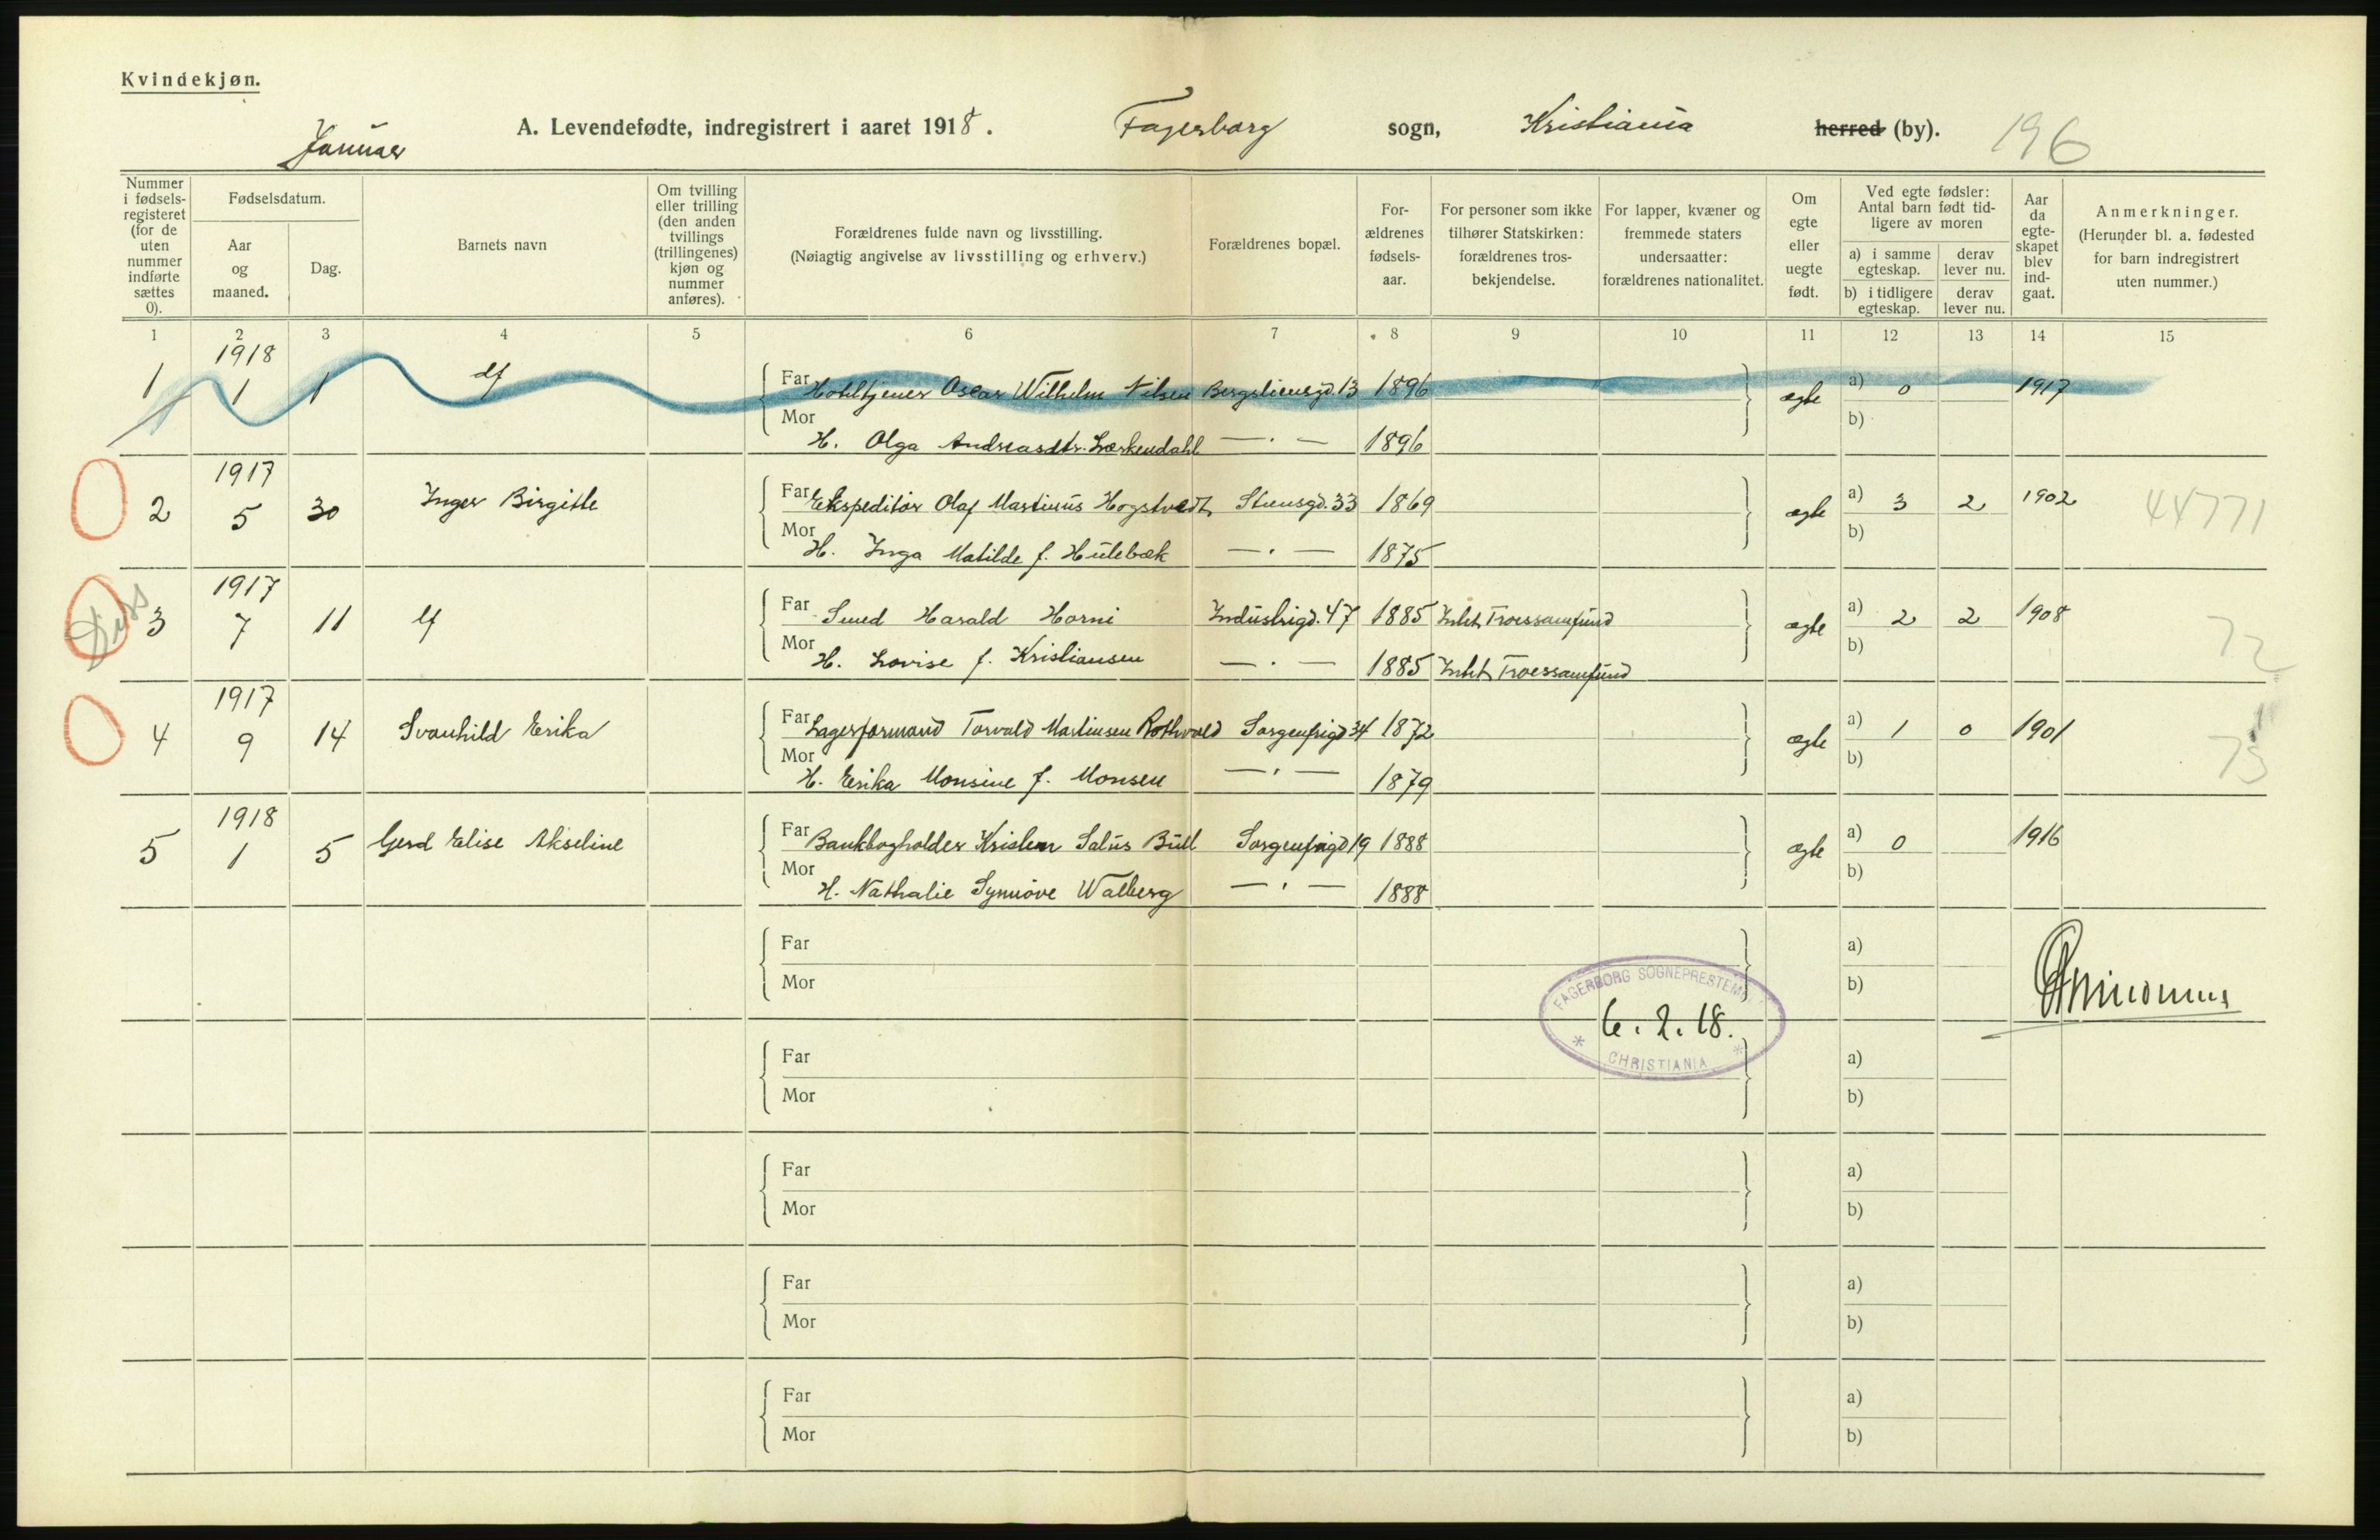 Kvindekjøn.
Januar
A. Levendefødte, indregistrert i aaret 1918.
Fagerborg sogn, Kristiania herred (by).
196
Nummer i fødsels-registeret (for de uten nummer indførte sættes 0).
Fødselsdatum.
Aar og maaned.
Dag.
Barnets navn
Om tvilling eller trilling (den anden tvillings (trillingenes) kjøn og nummer anføres).
Forældrenes fulde navn og livsstilling.
(Nøiagtig angivelse av livsstilling og erhverv.)
Forældrenes bopæl.
For-ældrenes fødsels-aar.
For personer som ikke tilhører Statskirken: forældrenes tros-bekjendelse.
For lapper, kvæner og fremmede staters undersaatter: forældrenes nationalitet.
Om egte eller uegte født.
Ved egte fødsler: Antal barn født tid-ligere av moren
a) i samme egteskap.
derav lever nu.
b) i tidligere egteskap.
derav lever nu.
Aar da egte-skapet blev ind-gaat.
Anmerkninger.
(Herunder bl. a. fødested for barn indregistrert uten nummer.)
1 2 3 4 5 6 7 8 9 10 11 12 13 14 15
1918
1 1 1
Far Hoteltjener Oscar Wilhelm Nilsen Bergsliensgd. 13 1896 ægte a) 0 1917
Mor H. Olga Andreasdtr. Lerkendahl — . — 1896 b)
1917
2 5 30 Inger Birgitte
Far Ekspeditør Olaf Martinius Hogstvedt Stensgd. 33 1869 ægte a) 3 2 1902 44771
Mor H. Inga Matilde f. Hulebæk — . — 1875 b)
1917
3 7 11
Far Smed Harald Horni Industrigd. 47 1885 Intet Troessamfund ægte a) 2 2 1908 72
Mor H. Lovise f. Kristiansen — . — 1885 Intet Troessamfund b)
1917
4 9 14 Svanhild Erika
Far Lagerformand Torvald Martinsen Rothvold Sorgenfrigd 34 1872 ægte a) 1 0 1901 73
Mor H. Erika Monsine f. Monsen — . — 1879 b)
1918
5 1 5 Gerd Elise Akseline
Far Bankbogholder Kristen Salus Bull Sorgenfrigd 19 1888 ægte a) 0 1916
Mor H. Nathalie Synnøve Walberg — . — 1888 b)
Far a)
Mor b)
FAGERBORG SOGNEPRESTEMB
6. 2. 18.
* CHRISTIANIA *
Far a)
Mor b)
Far a)
Mor b)
Far a)
Mor b)
Far a)
Mor b)